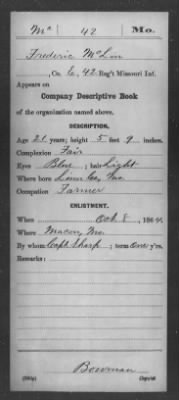 Mc 42 Mo.
Frederic McLin
, Co. E, 42 Reg't Missouri Inf.
Appears on
Company Descriptive Book
of the organization named above.
DESCRIPTION.
Age 21 years; height 5 feet 9 inches.
Complexion Fair
Eyes Blue; hair Light
Where born Linn Co,
Occupation Farmer
ENLISTMENT.
When Oct 8, 1864.
Where Macon, Mo.
By whom Capt Sharp; term one y'rs.
Remarks:
Bowman
Copyist